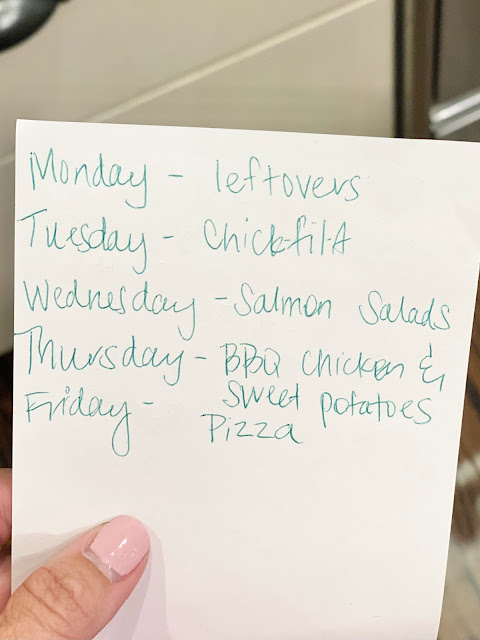 Monday - leftovers
Tuesday - Chick-fil-A
Wednesday - Salmon Salads
Thursday - BBQ Chicken &
sweet potatoes
Friday - Pizza